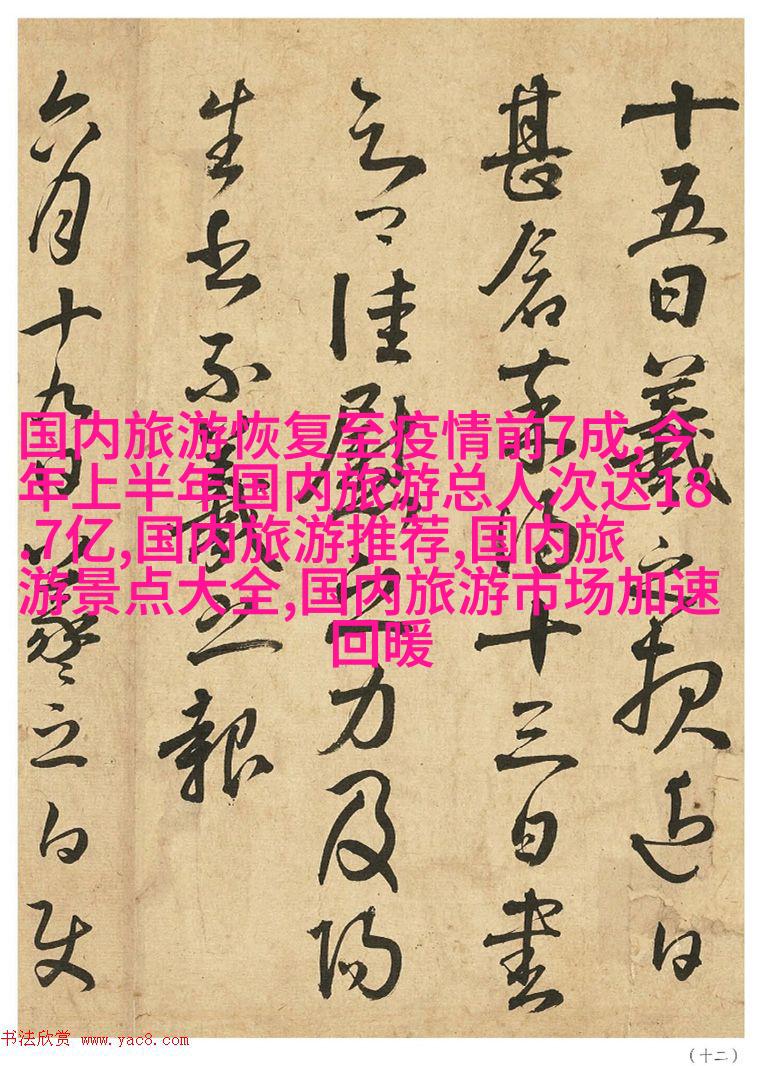 十五日羲之頓近日
甚念得十三日書
佳慰力及
生不羲之報
六月十九日羲之白
国内旅游恢复至疫情前7成,今
年上半年国内旅游总人次达18
.7亿,国内旅游推荐,国内旅
游景点大全,国内旅游市场加速
回暖
书法欣赏 www.yac8.com
(十二)